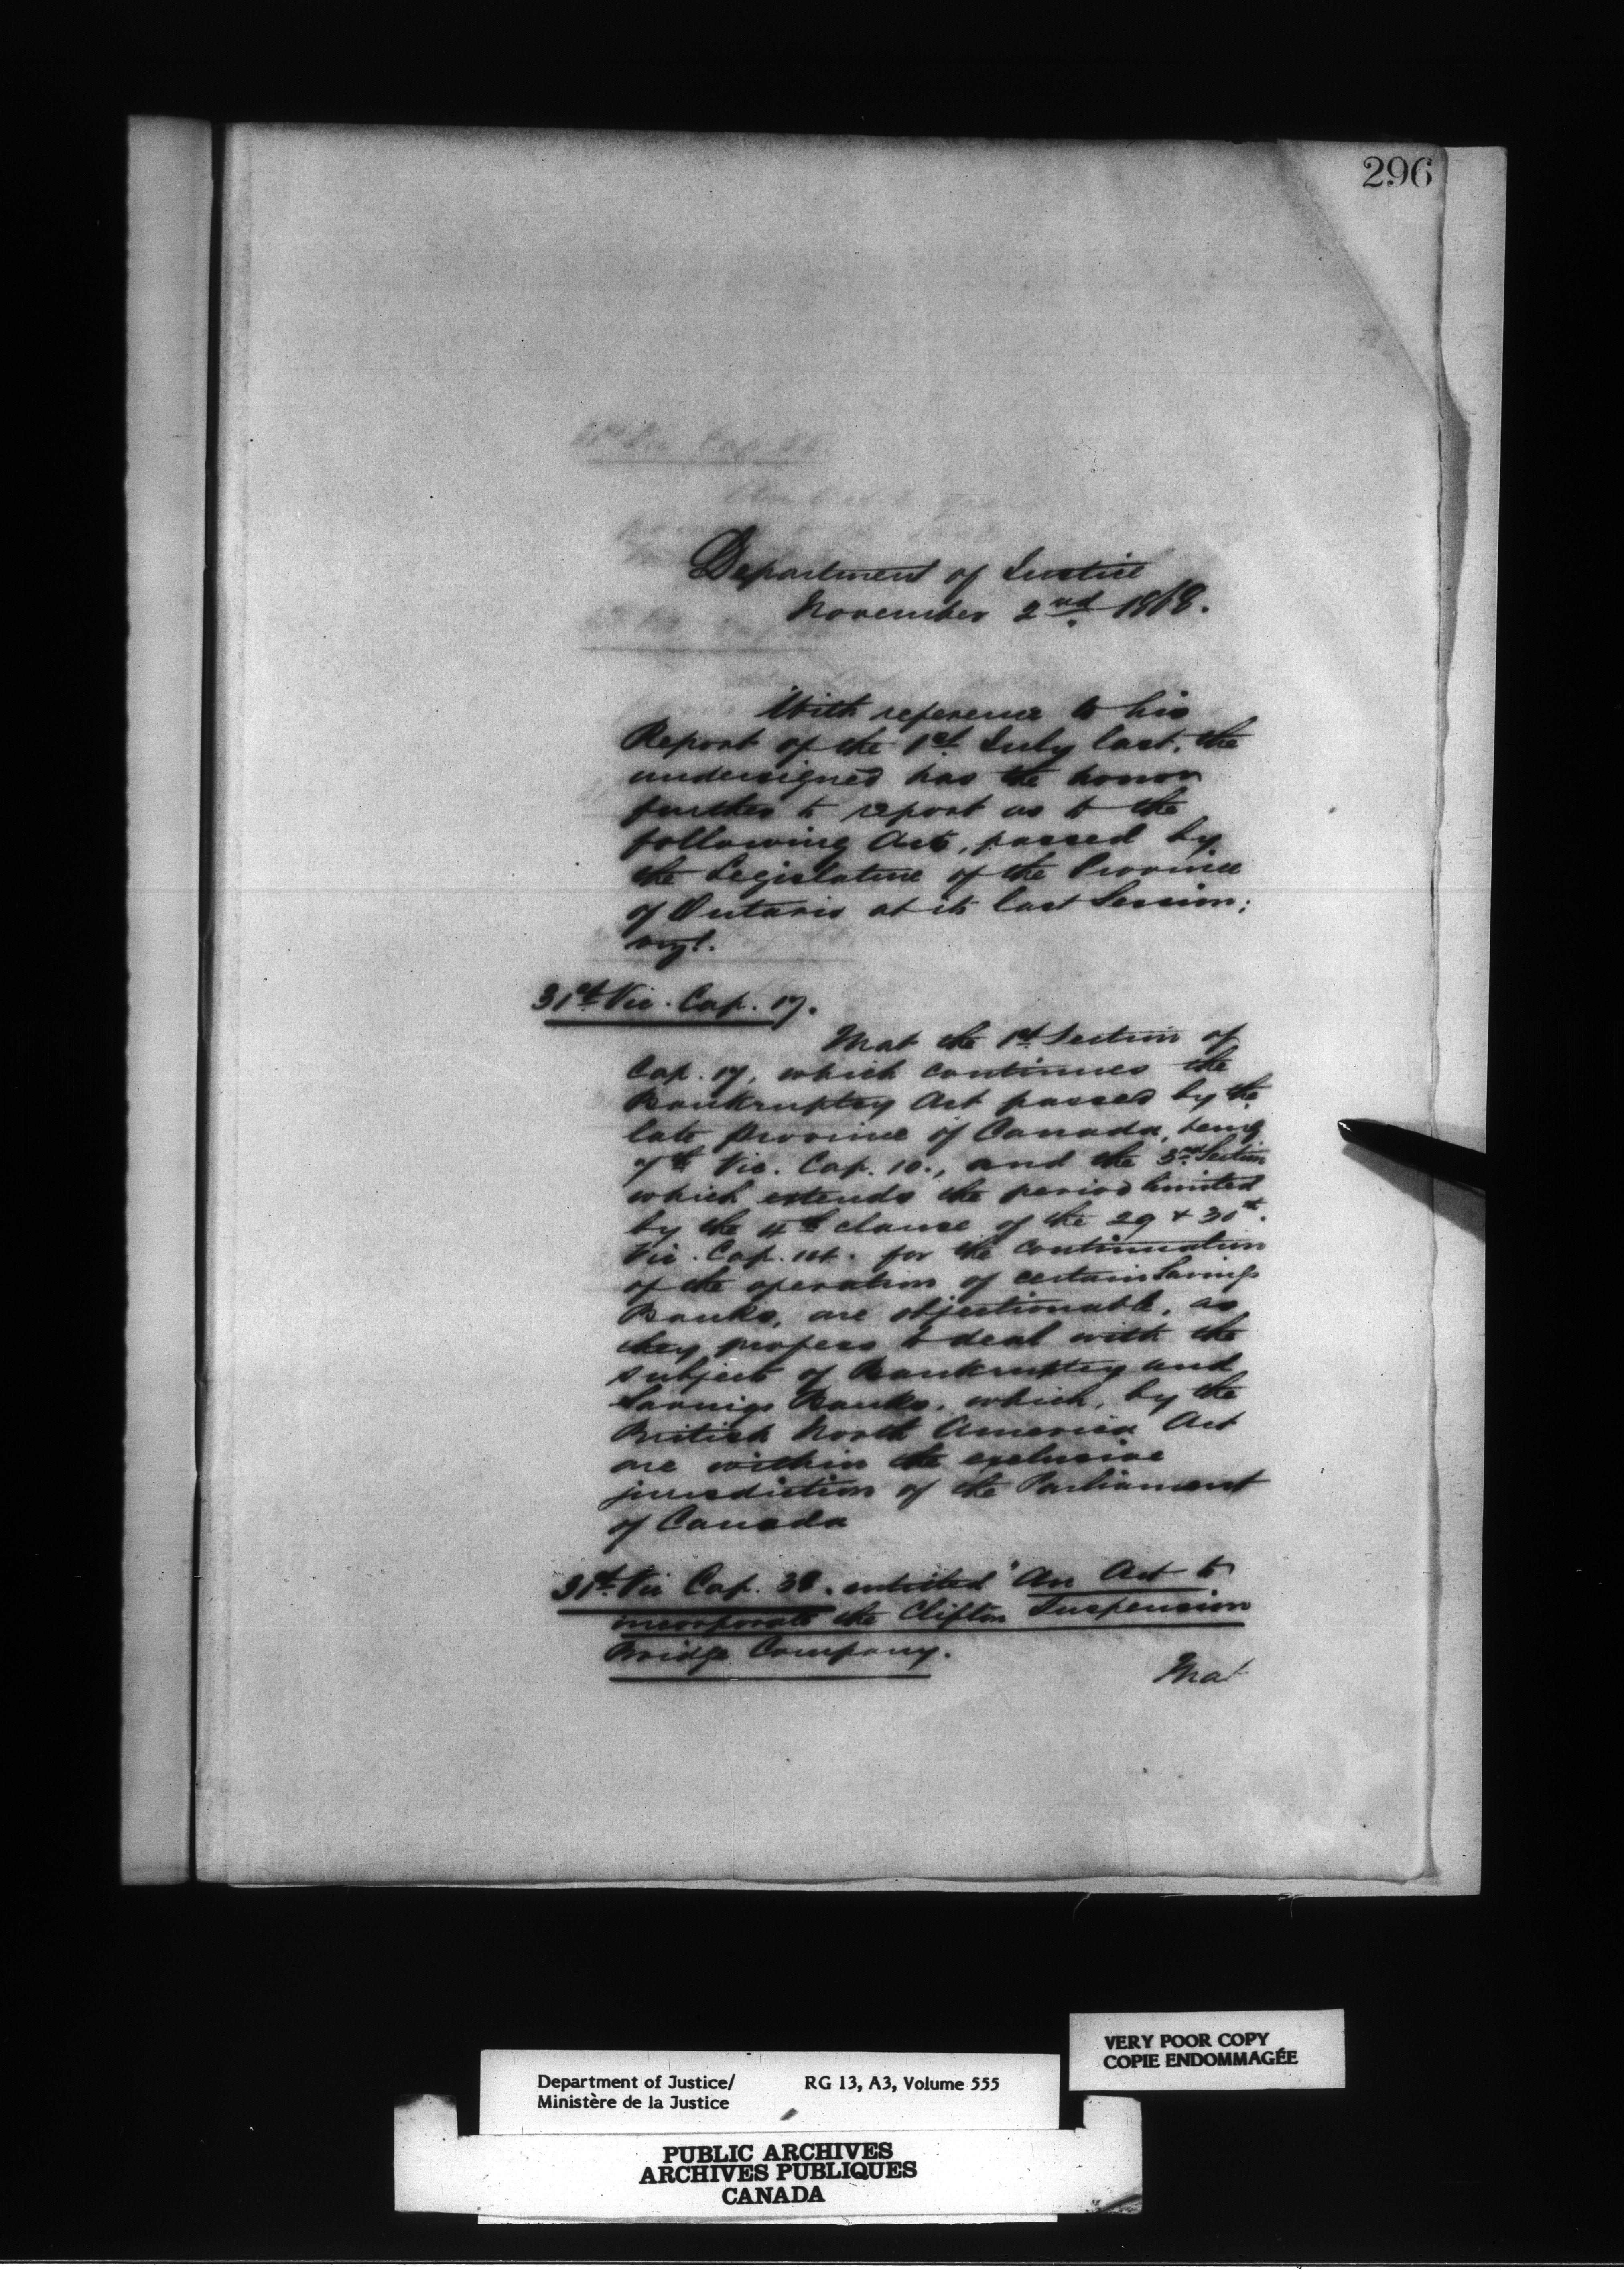 296
Department of Justice
November 2nd 1868.
With reference to his
Report of the 1st July last, the
undersigned has the honor
further to report as to the
following Acts, passed by
the Legislature of the Province
of Ontario at its last Session;
vizt.
31st Vic. Cap. 17.
That the 1st Section of
Cap. 17, which continues the
Bankruptcy Act passed by the
late Province of Canada, being
7th Vic. Cap. 10., and the 3rd Section
which extends the period limited
by the 4th clause of the 29 & 30th.
Vic. Cap. for the continuation
of the operation of certain Savings
Banks, are objectionable, as
they profess to deal with the
subject of Bankruptcy and
Savings Banks, which, by the
British North America Act
are within the exclusive
jurisdiction of the Parliament
of Canada
31st Vic Cap. 38. entitled "An Act to
incorporate the Clifton Suspension
Bridge Company.
That
VERY POOR COPY
COPIE ENDOMMAGÉE
Department of Justice/ RG 13, A3, Volume 555
Ministère de la Justice
PUBLIC ARCHIVES
ARCHIVES PUBLIQUES
CANADA